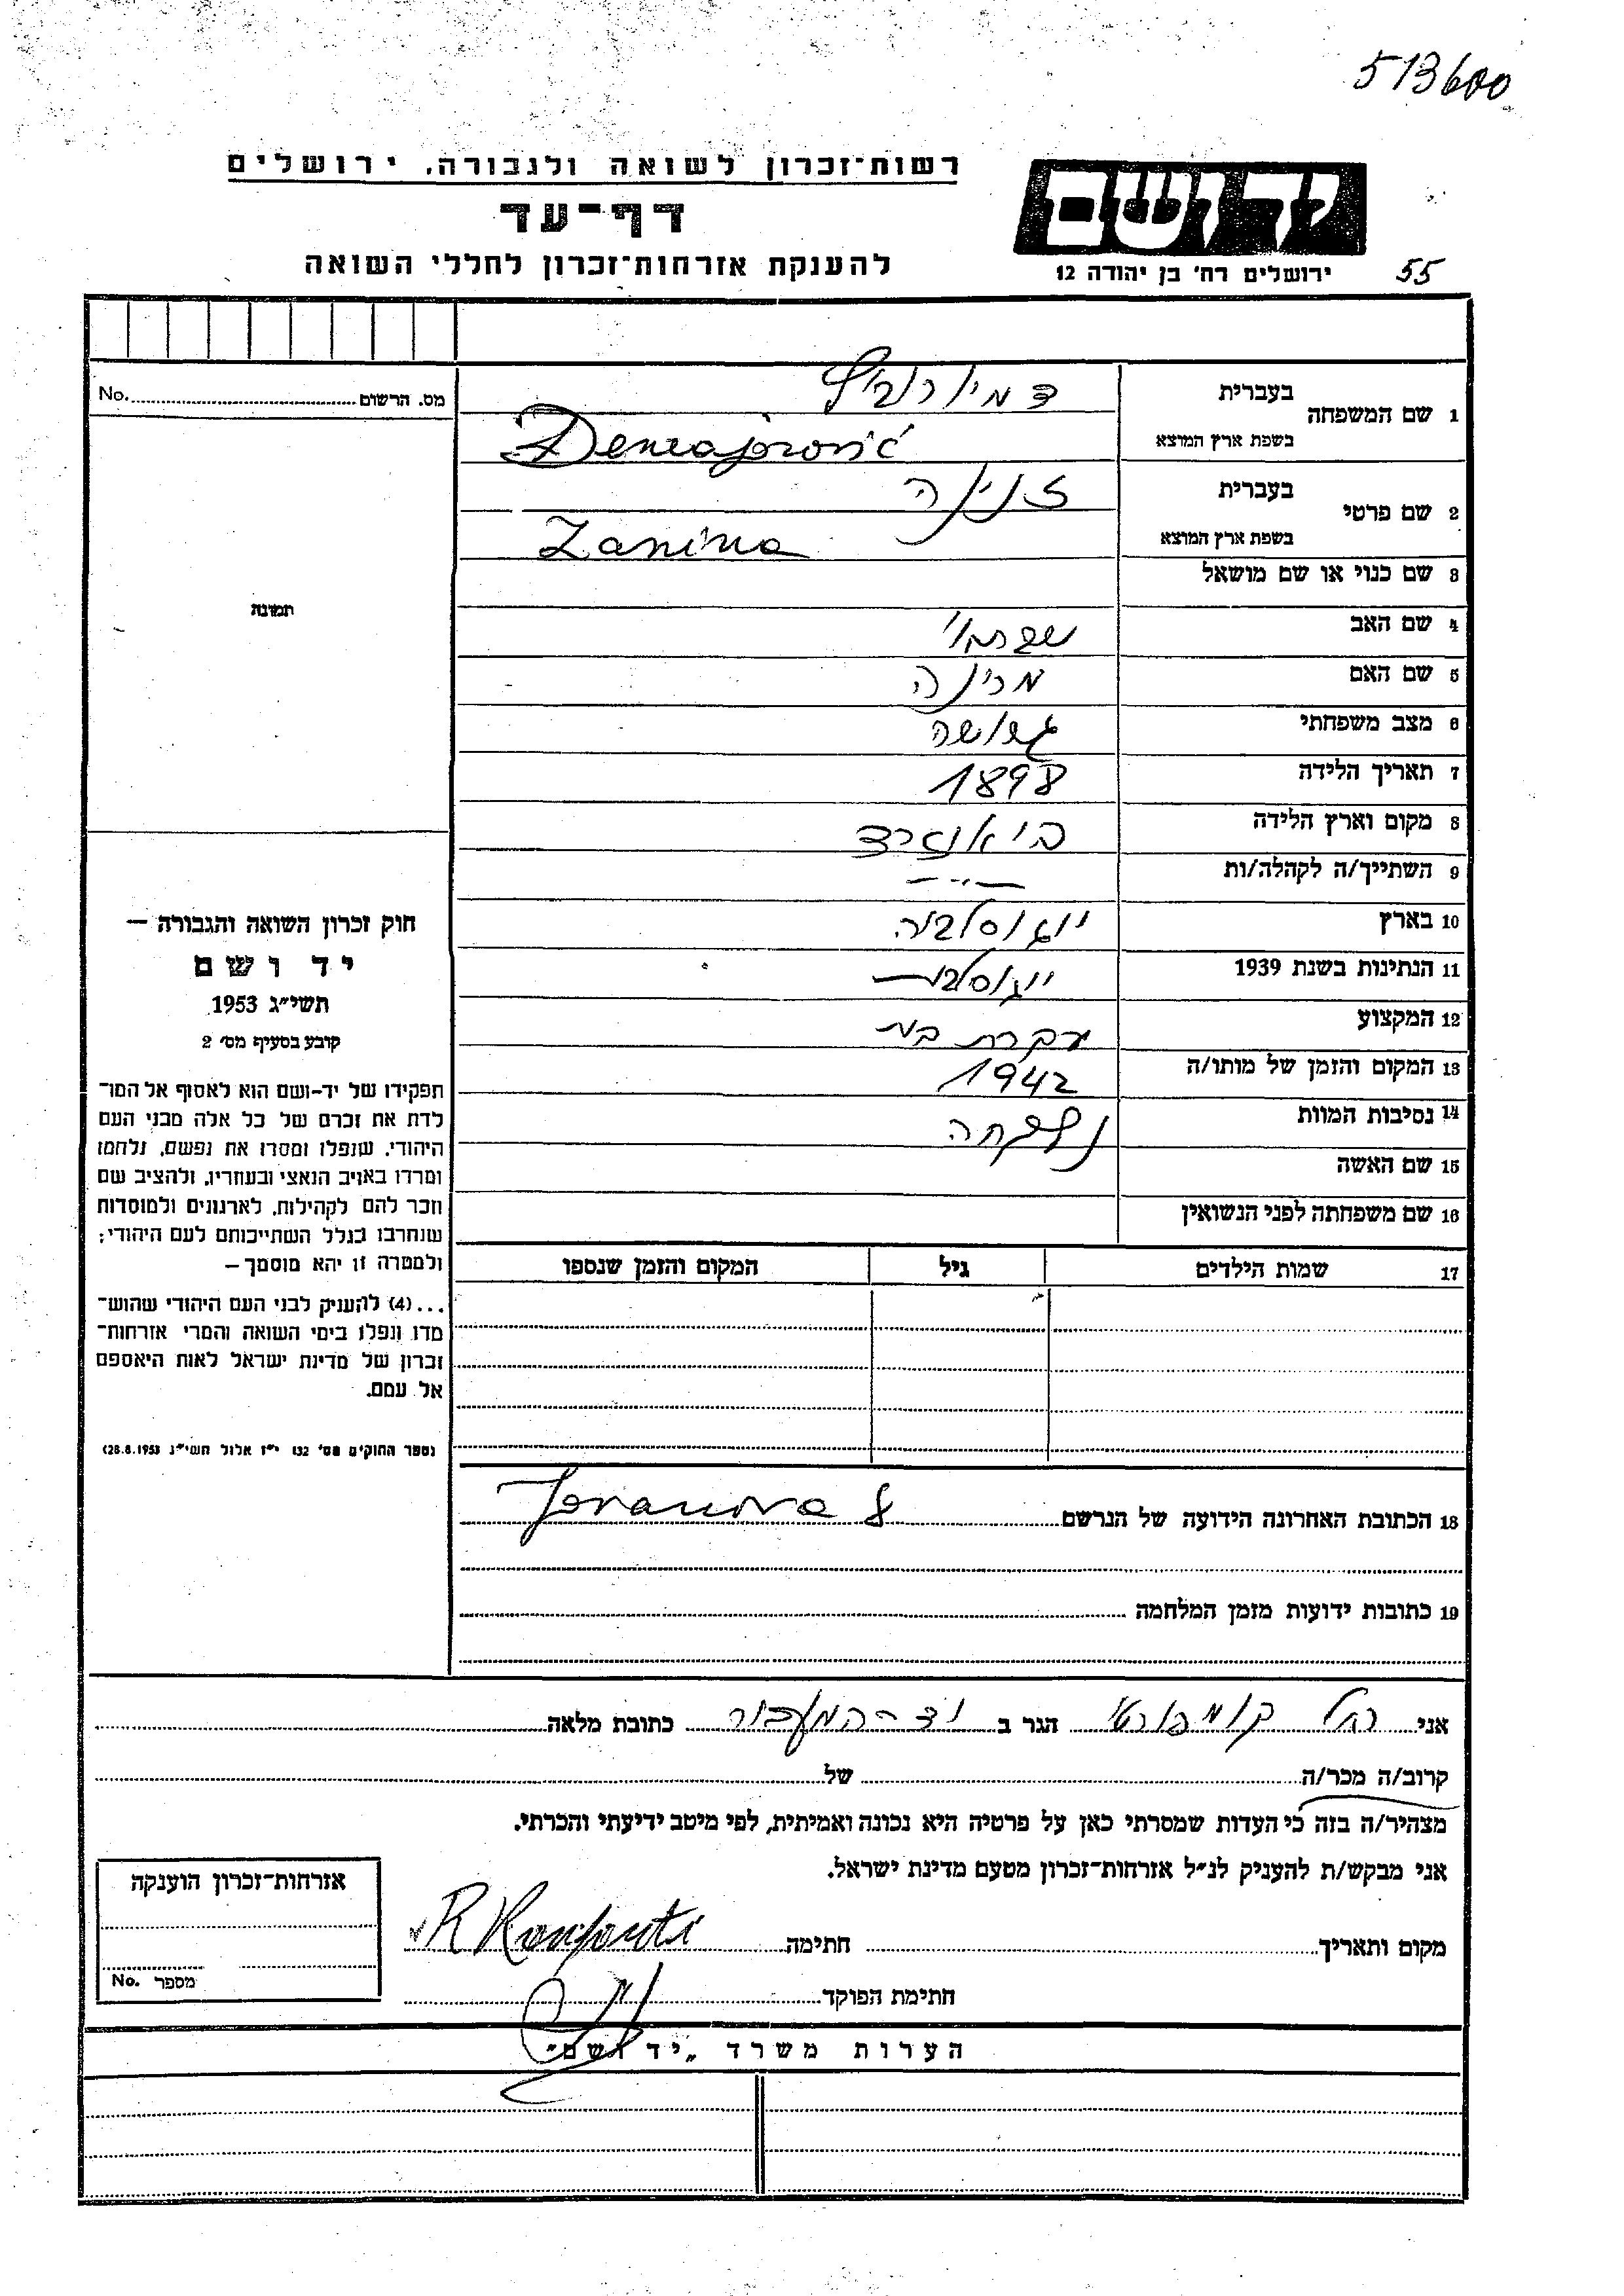 513600
רשות-זכרון לשואה ולגבורה. ירושלים
דף-עד
להענקת אזרחות-זכרון לחללי השואה
יד ושם
ירושלים רח' בן יהודה 12
55
מס. הרשום No.
1 שם המשפחה
בעברית
בשפת ארץ המוצא Demajorović
2 שם פרטי
בעברית ז'נינה
בשפת ארץ המוצא Zanina
3 שם כנוי או שם מושאל
4 שם האב
5 שם האם מרינה
6 מצב משפחתי גרושה
7 תאריך הלידה 1898
8 מקום וארץ הלידה
9 השתייך/ה לקהלה/ות — " —
10 בארץ יוגוסלביה
11 הנתינות בשנת 1939 יוגוסלבית
12 המקצוע עקרת בית
13 המקום והזמן של מותו/ה 1942
14 נסיבות המוות
15 שם האשה
16 שם משפחתה לפני הנשואין
תמונה
חוק זכרון השואה והגבורה —
יד ושם
תשי"ג 1953
קובע בסעיף מס' 2
תפקידו של יד-ושם הוא לאסוף אל המו־
לדת את זכרם של כל אלה מבני העם
היהודי, שנפלו ומסרו את נפשם, נלחמו
ומרדו באויב הנאצי ובעוזריו, ולהציב שם
וזכר להם לקהילות, לארגונים ולמוסדות
שנחרבו בגלל השתייכותם לעם היהודי;
ולמטרה זו יהא מוסמך —
...(4) להעניק לבני העם היהודי שהוש־
מדו ונפלו בימי השואה והמרי אזרחות־
זכרון של מדינת ישראל לאות היאספם
אל עמם.
(ספר החוקים מס' 132 י"ז אלול תשי"ג 28.8.1953)
17 שמות הילדים גיל המקום והזמן שנספו
18 הכתובת האחרונה הידועה של הנרשם Jovanova 8
19 כתובות ידועות מזמן המלחמה
אני רחל קונפורטי הגר ב יד-המעביר כתובת מלאה
קרוב/ה מכר/ה של
מצהיר/ה בזה כי העדות שמסרתי כאן על פרטיה היא נכונה ואמיתית, לפי מיטב ידיעתי והכרתי.
אני מבקש/ת להעניק לנ"ל אזרחות-זכרון מטעם מדינת ישראל.
מקום ותאריך חתימה R Konforti
חתימת הפוקד
אזרחות-זכרון הוענקה
מספר No.
הערות משרד „יד ושם"